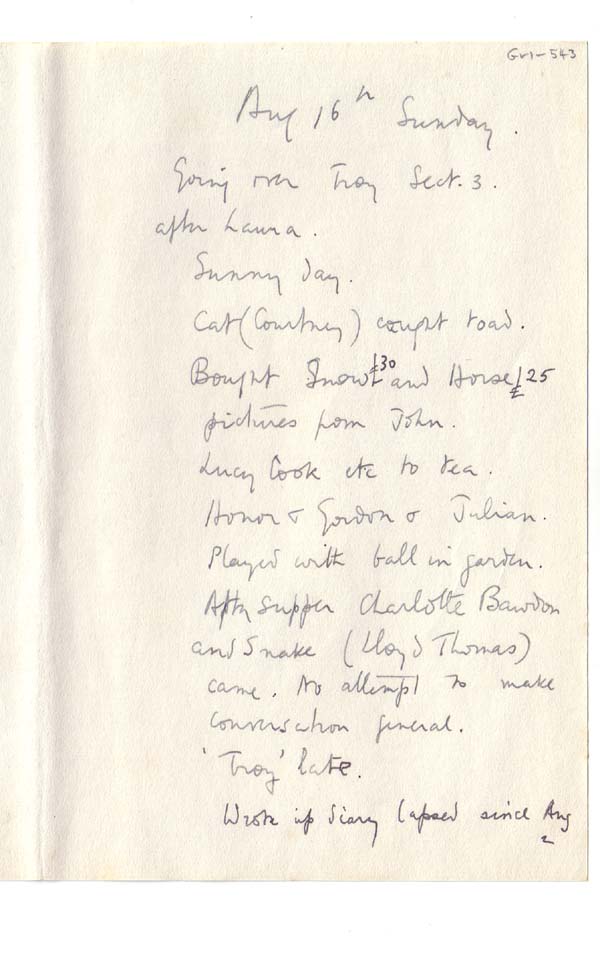 Gr1-543
Aug 16th Sunday.
Going over Troy Sect. 3.
after Laura.
Sunny day.
Cat (Courtney) caught toad.
Bought Snow £30 and Horse £25
pictures from John.
Lucy Cook etc to tea.
Honor & Gordon & Julian.
Played with ball in garden.
After supper Charlotte Bawdon
and Snake (Lloyd Thomas)
came. No attempt to make
conversation general.
'Troy' late.
Wrote up diary lapsed since Aug
2